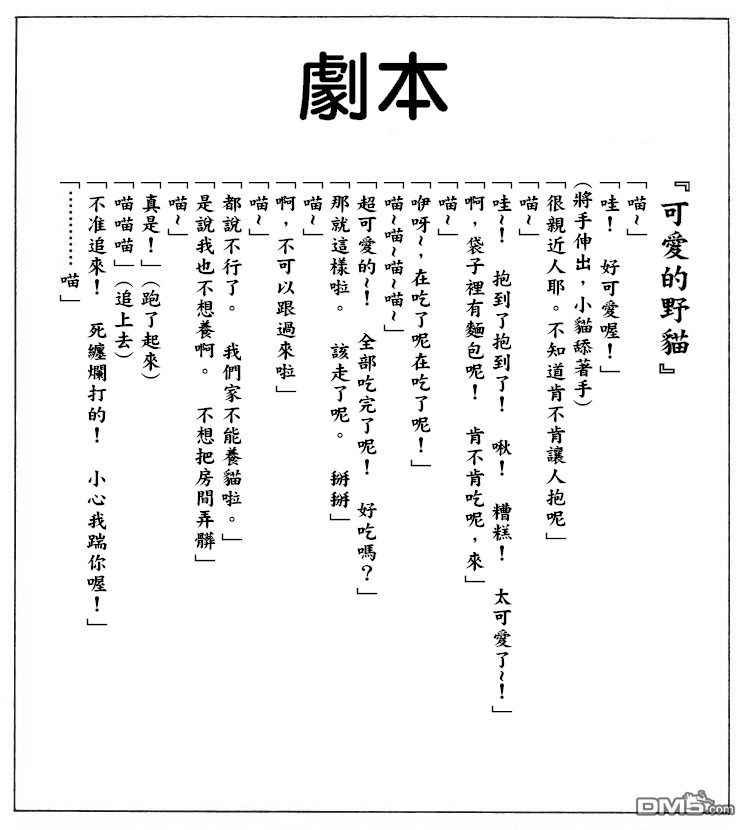 劇本
『可愛的野貓』
「喵~」
「哇！　好可愛喔！」
(將手伸出，小貓舔著手)
「很親近人耶。不知道肯不肯讓人抱呢」
「喵~」
「哇~！　抱到了抱到了！　啾！　糟糕！　太可愛了~！」
「啊，袋子裡有麵包呢！　肯不肯吃呢，來」
「喵~」
「咿呀~，在吃了呢在吃了呢！」
「喵~喵~喵~喵~」
「超可愛的~！　全部吃完了呢！　好吃嗎？」
「那就這樣啦。　該走了呢。　掰掰」
「喵~」
「啊，不可以跟過來啦」
「喵~」
「都說不行了。　我們家不能養貓啦。」
「是說我也不想養啊。　不想把房間弄髒」
「喵~」
「真是！」(跑了起來)
「喵喵喵」(追上去)
「不准追來！　死纏爛打的！　小心我踹你喔！」
「…………喵」
DM5.com